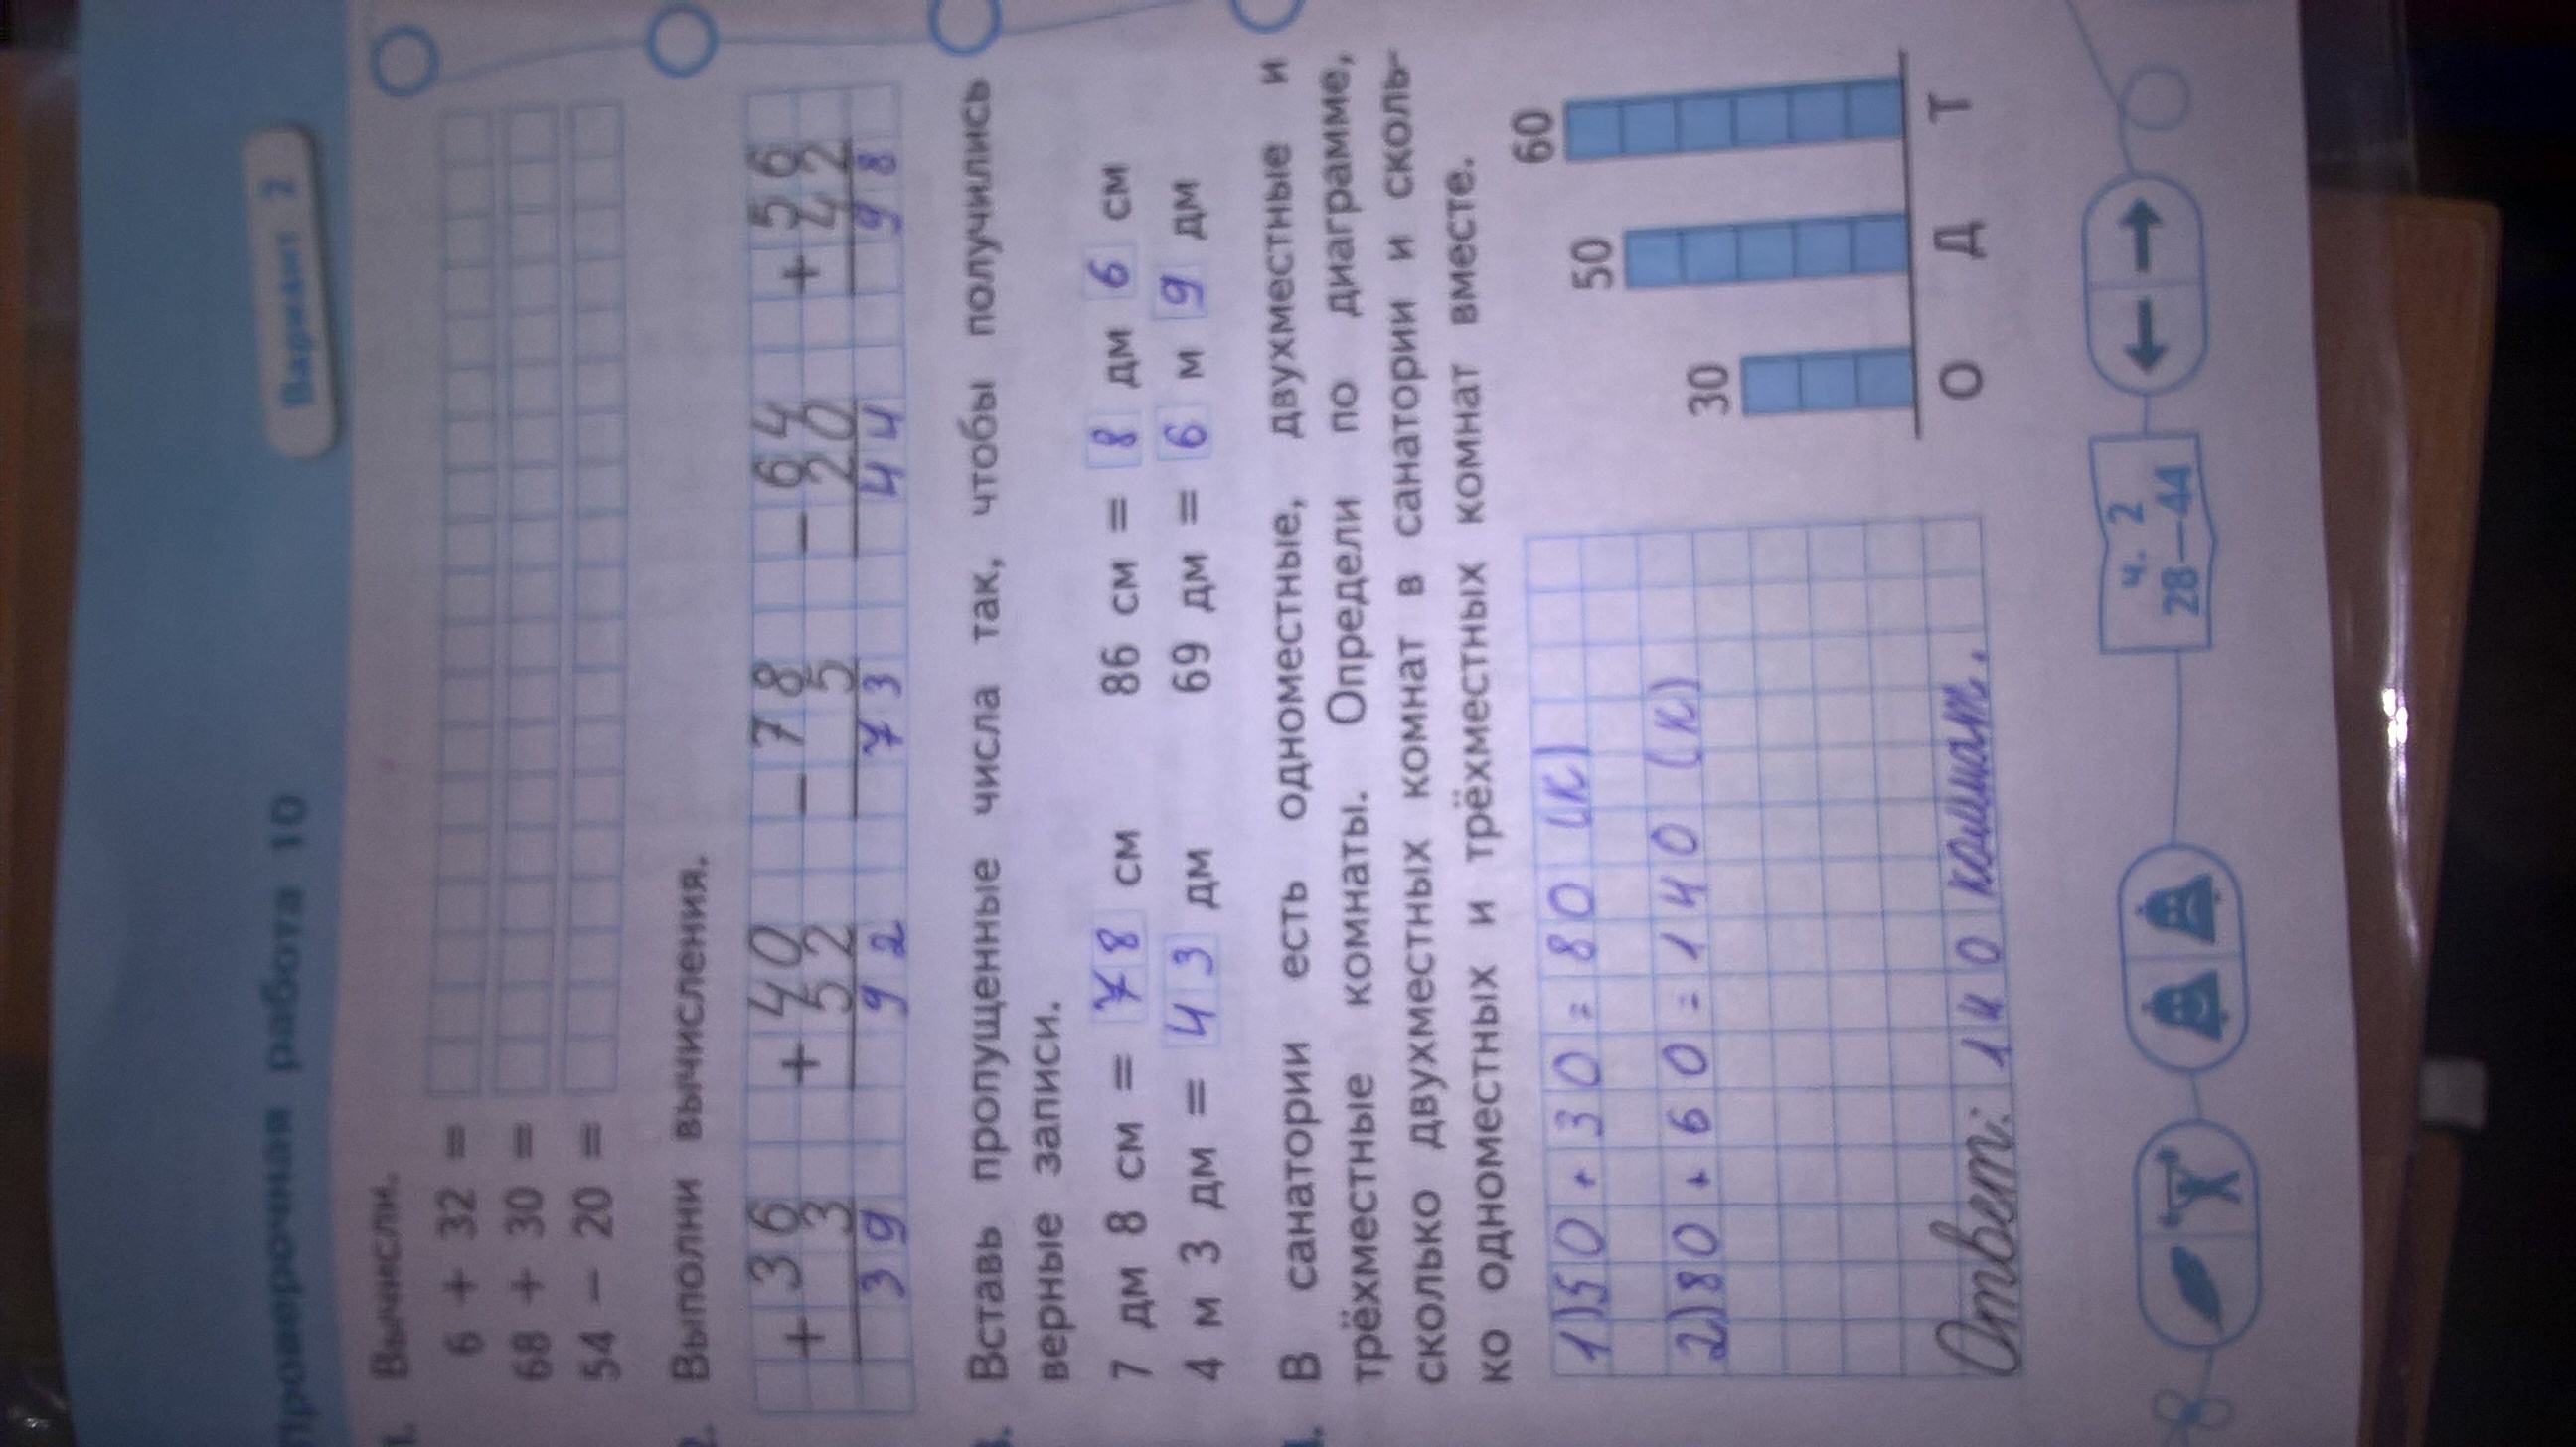 Проверочная работа 10
Вариант 2
1. Вычисли.
6 + 32 =
68 + 30 =
54 − 20 =
2. Выполни вычисления.
+ 36 + 40 − 78 − 64 + 56
3 52 5 20 42
39 92 73 44 98
3. Вставь пропущенные числа так, чтобы получились
верные записи.
7 дм 8 см = 78 см 86 см = 8 дм 6 см
4 м 3 дм = 43 дм 69 дм = 6 м 9 дм
4. В санатории есть одноместные, двухместные и
трёхместные комнаты. Определи по диаграмме,
сколько двухместных комнат в санатории и сколь-
ко одноместных и трёхместных комнат вместе.
1) 50 + 30 = 80 (к)
2) 80 + 60 = 140 (к)
Ответ: 140 комнат.
30 50 60
О Д Т
ч. 2
28—44